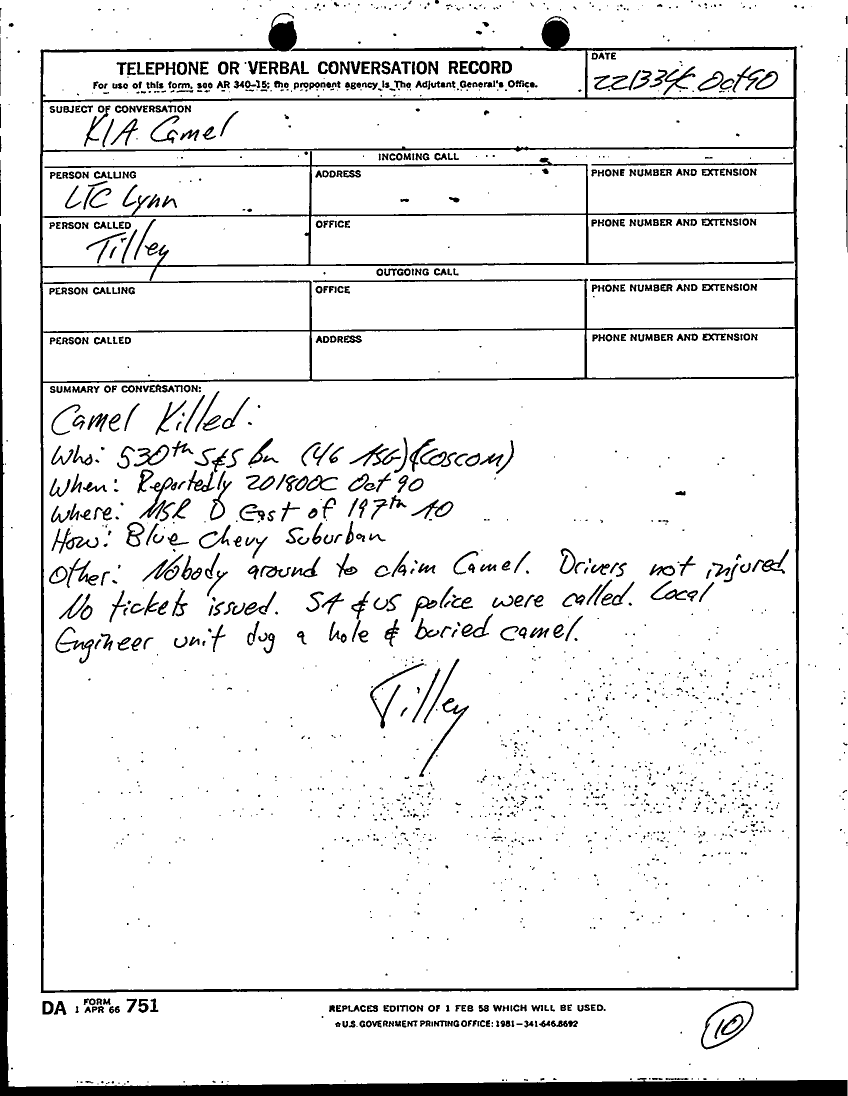 TELEPHONE OR VERBAL CONVERSATION RECORD
For use of this form, see AR 340-15; the proponent agency is The Adjutant General's Office.
DATE
221334C Oct 90
SUBJECT OF CONVERSATION
KIA Camel
INCOMING CALL
PERSON CALLING
LTC Lynn
ADDRESS
PHONE NUMBER AND EXTENSION
PERSON CALLED
Tilley
OFFICE
PHONE NUMBER AND EXTENSION
OUTGOING CALL
PERSON CALLING
OFFICE
PHONE NUMBER AND EXTENSION
PERSON CALLED
ADDRESS
PHONE NUMBER AND EXTENSION
SUMMARY OF CONVERSATION:
Camel Killed:
Who: 530th S&S bn (46 ASG)(COSCOM)
When: Reportedly 201800C Oct 90
Where: MSR D East of 197th AO
How: Blue Chevy Suburban
Other: Nobody around to claim Camel. Drivers not injured.
No tickets issued. SA & US police were called. Local
Engineer unit dug a hole & buried camel.
Tilley
DA FORM 1 APR 66 751
REPLACES EDITION OF 1 FEB 58 WHICH WILL BE USED.
☆ U.S. GOVERNMENT PRINTING OFFICE: 1981-341-646.8692
10